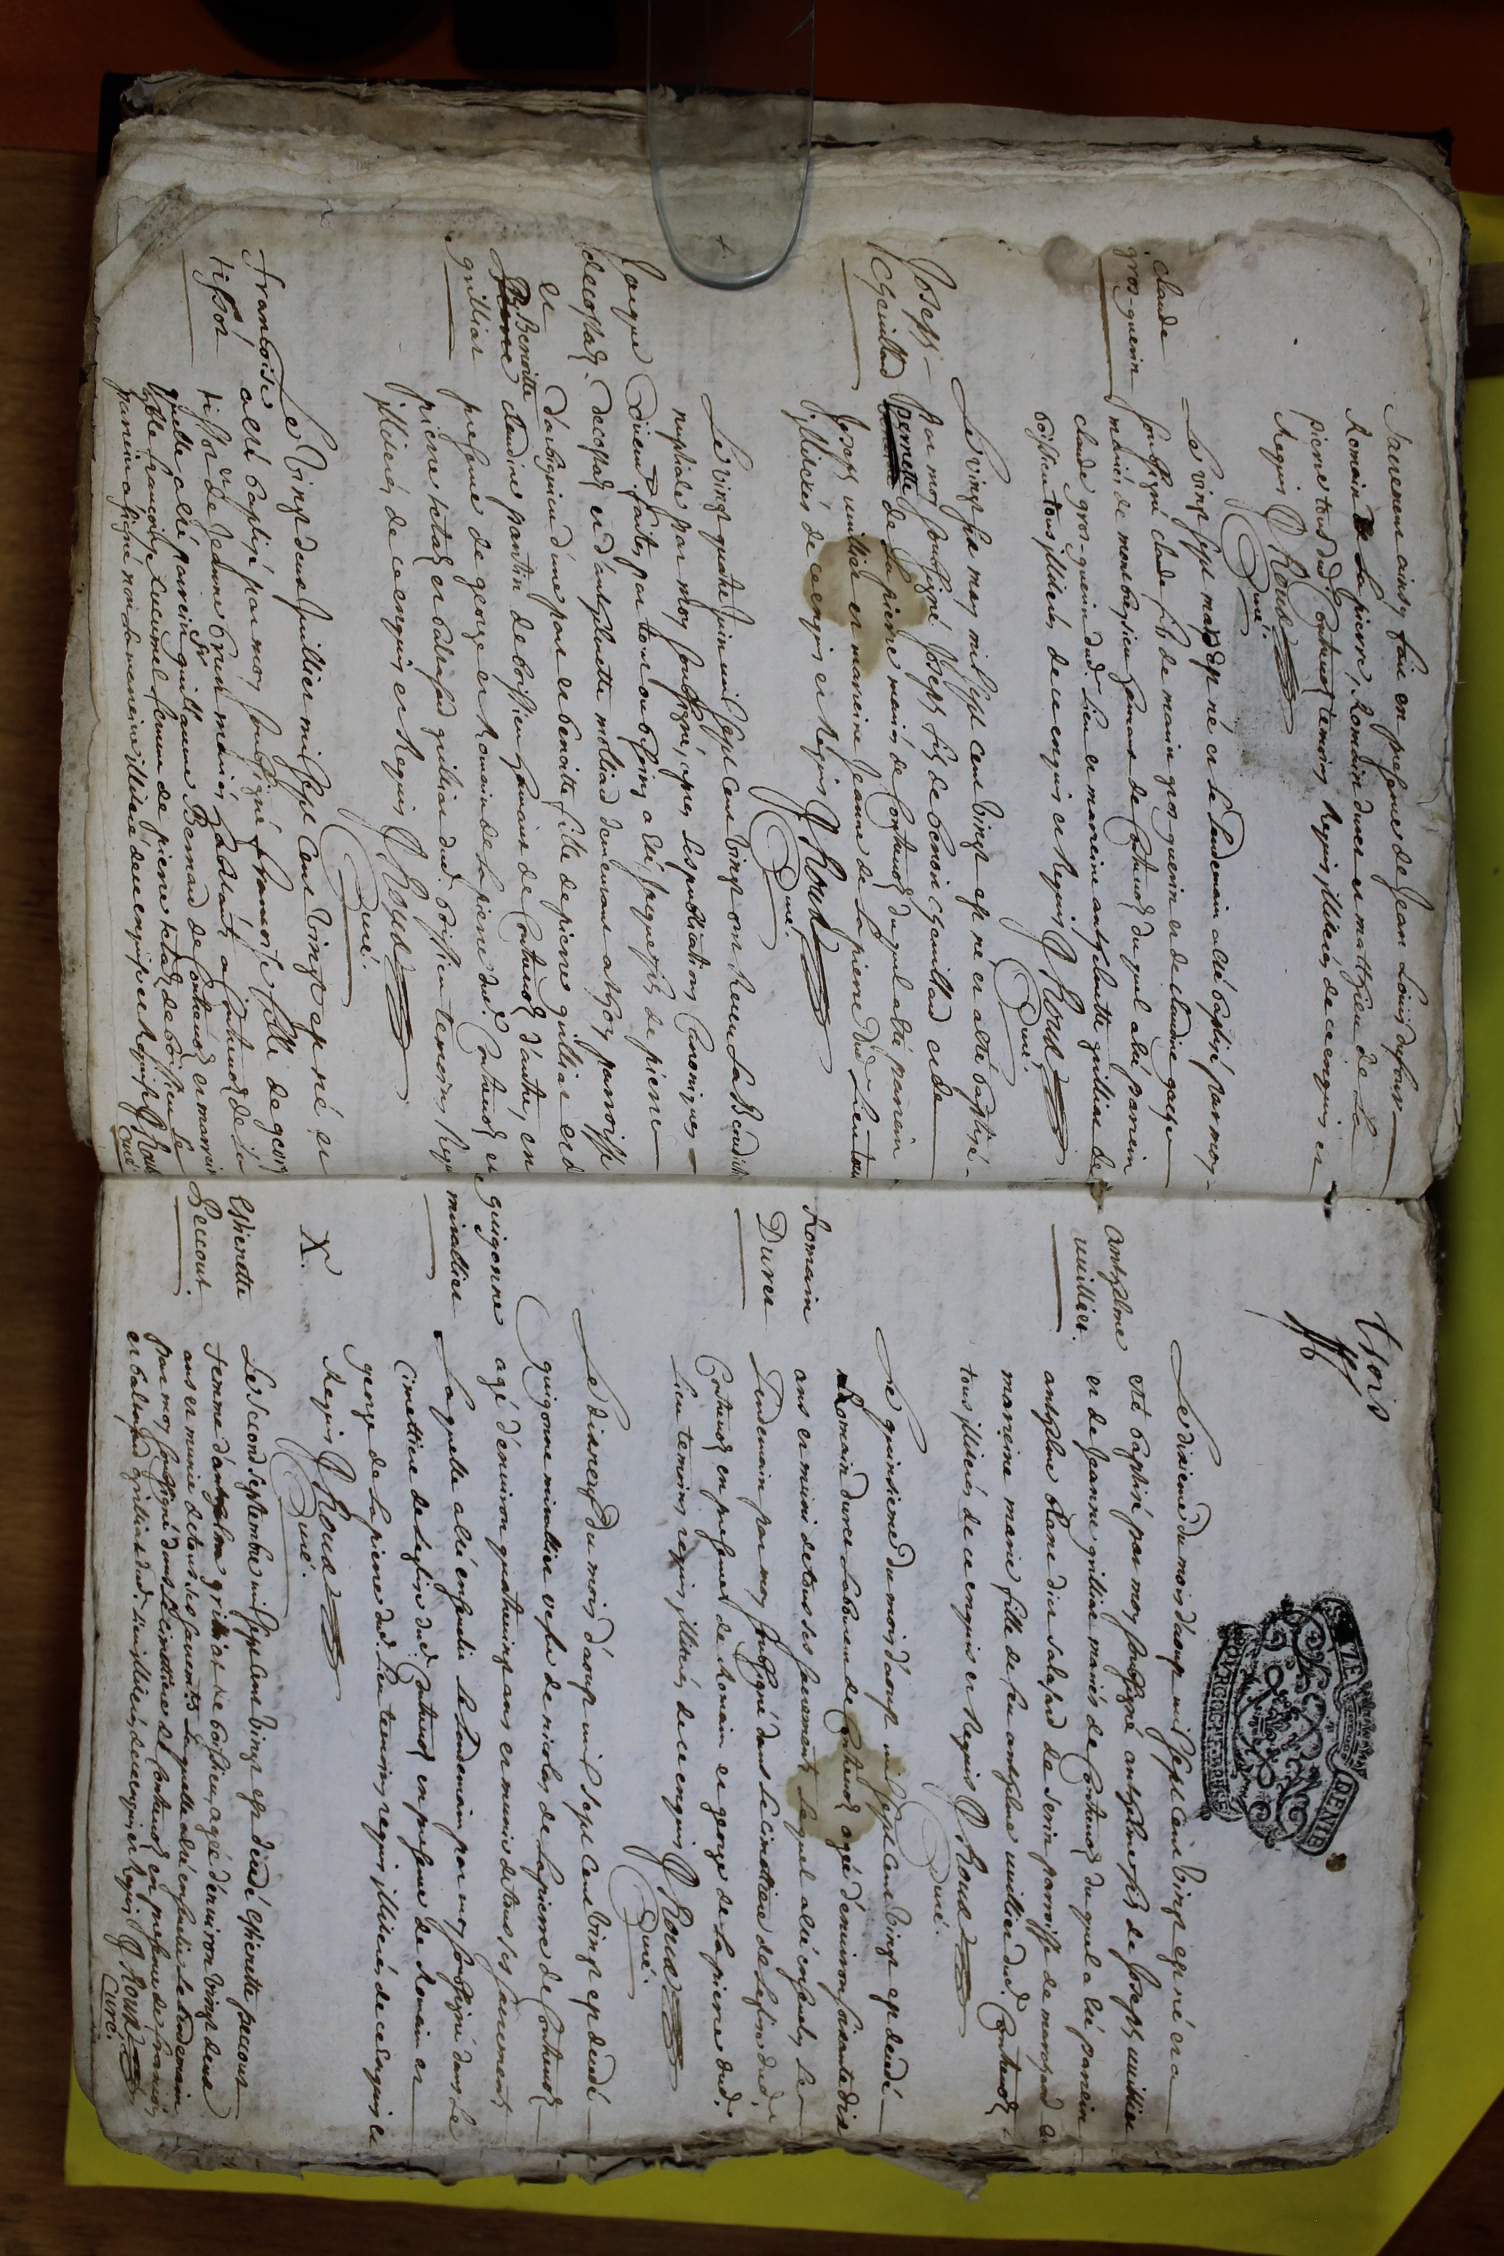 sacrement ainsy fait en presence de Jean Louis dufour
Romain De La pierre, Romain duret et matthieu de La
pierre tous dud. Contreuod temoins requis illiterés de ce enquis et
Requis J Roux
Curé.
claude
gros-guerin
Le vingt sept may est né et le Lendemain a été baptisé par moy
soussigné claude fils de marin gros guerin et de claudine gache
mariés de mont boissieu hameau de Contreuod duquel a été parrein
claude gros-guerin dud. Lieu et marreine anthelmette guilliat de
boissieu tous illiterés de ce enquis et Requis J Roux
Curé.
Joseph
Chouillloud
Le vingt six may mil sept cent vingt est né et a été baptisé
par moy soussigné Joseph fils de benoit et de
pernette de La pierre mariés de Contreuod duquel a été parrein
Joseph vuillier et marreine Jeanne de La pierre dud. Lieu tous
illiterés de ce enquis et Requis J Roux
Curé.
Le vingt quatre juin mil sept cent vingt ont Receu La Benedict
nuptiale par moy soussigné, apres les publications Canoniques
Jaque
decostaz
et
Benoitte
guilliat
Dieu faites par tout ou besoing a été, jaque fils de pierre
decostaz et d'anthelmette molliard demeurant a parroisse
d'arbignieu d'une part et benoitte fille de pierre guilliat et d
claudine pantin de boissieu hameau de Contreuod d'autre, en
presence de george et Romain de La pierre dud. Contreuod et
pierre tetaz et baltazard guilliat dud. boissieu temoins Requ
illiterés de ce enquis et Requis J Roux
Curé.
francoise
tissot
Le vingt deux juillier mil sept cent vingt est né et
a été baptisé par moy soussigné francoise fille de geor
tissot et de Jeanne brun mariés habitants a Contreuod de la
quelle a été parrein Sr guillaume Bernard de Contreuod et marrein
hble francoise Lucunel femme de pierre tetaz de boissieu le
parrein a signé non la marreine illiterée de ce enquise et Requise J Roux
Curé
trois
SZE DENIE
Le dixieme du mois d'aoust mil sept cent vingt est né et a
anthelme
vuillier.
eté baptisé par moy soussigné anthelme fils de Joseph vuillier
et de Jeanne guilliat mariés de Contreuod duquel a été parrein
anthelme blanc dit salafard de serin parroisse de marchand et
marreine marie fille de feu anthelme vuillier dud. Contreuod
tous illiterés de ce enquis et Requis J Roux
Curé.
Romain
Duret
Le quinzieme du mois d'aoust mil sept cent vingt est decedé
Romain duret Laboureur de Contreuod agé d'environ soixante dix
ans et muni de tous ses sacrements Lequel a été enseuely Le
Lendemain par moy soussigné dans Le Cimettiere de Leglise dud.
Contreuod en presence de Romain et george de La pierre dud.
Lieu temoins requis illiterés de ce enquis J Roux
Curé.
guigonne
miraillier
Le dixneuf du mois d'aoust mil sept cent vingt est decedé
guigonne miraillier vefve de nicolas de Lapierre de Contreuod
agé d'environ quatrevingt ans et munie de tous ses sacrements
Laquelle a été enseuelie Le Lendemain par moy soussigné dans Le
Cimettiere de Leglise dud. Contreuod en presence de Romain et
george de La pierre dud. Lieu temoins requis illiterés de ce enquis et
Requis J Roux
Curé.
X.
Estienette
Peccout.
Le second septembre mil sept cent vingt est decedé Estienette peccout
femme d'anthelme guilliat de boissieu, agée d'environ vingt deux
ans et munie de tous ses sacrements Laquelle a été enseuelie Le Lendemain
par moy soussigné dans Le Cimettiere de Contreuod en presence de francois
et baltazard guilliat dud. Lieu illiterés de ce enquis et Requis J Roux
Curé.